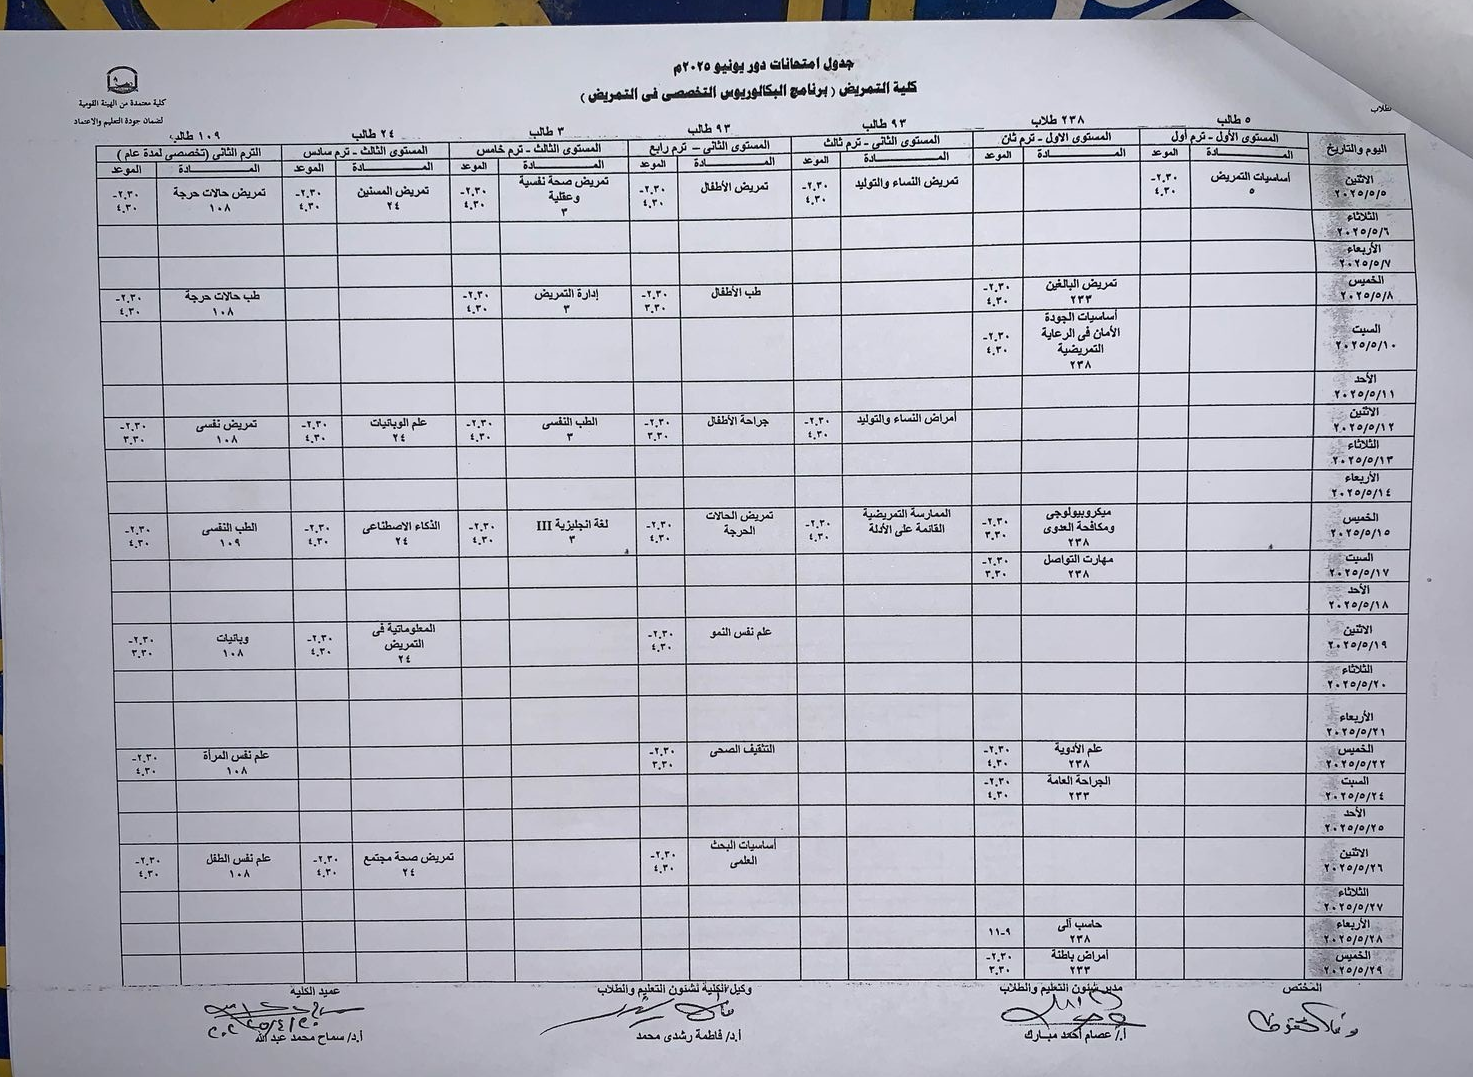 جدول امتحانات دور يونيو ٢٠٢٥م
كلية التمريض ( برنامج البكالوريوس التخصصى فى التمريض )
كلية معتمدة من الهيئة القومية
لضمان جودة التعليم والاعتماد
طلاب
٥ طالب ٢٣٨ طلاب ٩٣ طالب ٩٣ طالب ٣ طالب ٢٤ طالب ١٠٩ طالب
اليوم والتاريخ المستوى الأول - ترم أول المستوى الاول - ترم ثان المستوى الثانى - ترم ثالث المستوى الثانى – ترم رابع المستوى الثالث - ترم خامس المستوى الثالث - ترم سادس الترم الثانى (تخصصى لمدة عام )
المـــــادة الموعد المـــــادة الموعد المـــــادة الموعد المـــــادة الموعد المـــــادة الموعد المـــــادة الموعد المـــــادة الموعد
الاثنين ٢٠٢٥/٥/٥ أساسيات التمريض ٥ ٢.٣٠- ٤.٣٠ تمريض النساء والتوليد ٢.٣٠- ٤.٣٠ تمريض الأطفال ٢.٣٠- ٤.٣٠ تمريض صحة نفسية وعقلية ٣ ٢.٣٠- ٤.٣٠ تمريض المسنين ٢٤ ٢.٣٠- ٤.٣٠ تمريض حالات حرجة ١٠٨ ٢.٣٠- ٤.٣٠
الثلاثاء ٢٠٢٥/٥/٦
الأربعاء ٢٠٢٥/٥/٧
الخميس ٢٠٢٥/٥/٨ تمريض البالغين ٢٣٣ ٢.٣٠- ٤.٣٠ طب الأطفال ٢.٣٠- ٣.٣٠ إدارة التمريض ٣ ٢.٣٠- ٤.٣٠ طب حالات حرجة ١٠٨ ٢.٣٠- ٤.٣٠
السبت ٢٠٢٥/٥/١٠ أساسيات الجودة الأمان فى الرعاية التمريضية ٢٣٨ ٢.٣٠- ٤.٣٠
الأحد ٢٠٢٥/٥/١١
الاثنين ٢٠٢٥/٥/١٢ أمراض النساء والتوليد ٢.٣٠- ٤.٣٠ جراحة الأطفال ٢.٣٠- ٣.٣٠ الطب النفسى ٣ ٢.٣٠- ٤.٣٠ علم الوبائيات ٢٤ ٢.٣٠- ٤.٣٠ تمريض نفسى ١٠٨ ٢.٣٠- ٣.٣٠
الثلاثاء ٢٠٢٥/٥/١٣
الأربعاء ٢٠٢٥/٥/١٤
الخميس ٢٠٢٥/٥/١٥ ميكروبيولوجى ومكافحة العدوى ٢٣٨ ٢.٣٠- ٣.٣٠ الممارسة التمريضية القائمة على الأدلة ٢.٣٠- ٤.٣٠ تمريض الحالات الحرجة ٢.٣٠- ٤.٣٠ لغة انجليزية III ٣ ٢.٣٠- ٤.٣٠ الذكاء الاصطناعى ٢٤ ٢.٣٠- ٤.٣٠ الطب النفسى ١٠٩ ٢.٣٠- ٤.٣٠
السبت ٢٠٢٥/٥/١٧ مهارت التواصل ٢٣٨ ٢.٣٠- ٣.٣٠
الأحد ٢٠٢٥/٥/١٨
الاثنين ٢٠٢٥/٥/١٩ علم نفس النمو ٢.٣٠- ٤.٣٠ المعلوماتية فى التمريض ٢٤ ٢.٣٠- ٤.٣٠ وبائيات ١٠٨ ٢.٣٠- ٣.٣٠
الثلاثاء ٢٠٢٥/٥/٢٠
الأربعاء ٢٠٢٥/٥/٢١
الخميس ٢٠٢٥/٥/٢٢ علم الأدوية ٢٣٨ ٢.٣٠- ٤.٣٠ التثقيف الصحى ٢.٣٠- ٣.٣٠ علم نفس المرأة ١٠٨ ٢.٣٠- ٤.٣٠
السبت ٢٠٢٥/٥/٢٤ الجراحة العامة ٢٣٣ ٢.٣٠- ٤.٣٠
الأحد ٢٠٢٥/٥/٢٥
الاثنين ٢٠٢٥/٥/٢٦ أساسيات البحث العلمى ٢.٣٠- ٤.٣٠ تمريض صحة مجتمع ٢٤ ٢.٣٠- ٤.٣٠ علم نفس الطفل ١٠٨ ٢.٣٠- ٤.٣٠
الثلاثاء ٢٠٢٥/٥/٢٧
الأربعاء ٢٠٢٥/٥/٢٨ حاسب آلى ٢٣٨ ٩-١١
الخميس ٢٠٢٥/٥/٢٩ أمراض باطنة ٢٣٣ ٢.٣٠- ٣.٣٠
المختص مدير شئون التعليم والطلاب وكيل الكلية لشئون التعليم والطلاب عميد الكلية
أ./ عصام أحمد مبارك أ.د/ فاطمة رشدى محمد أ.د/ سماح محمد عبد الله